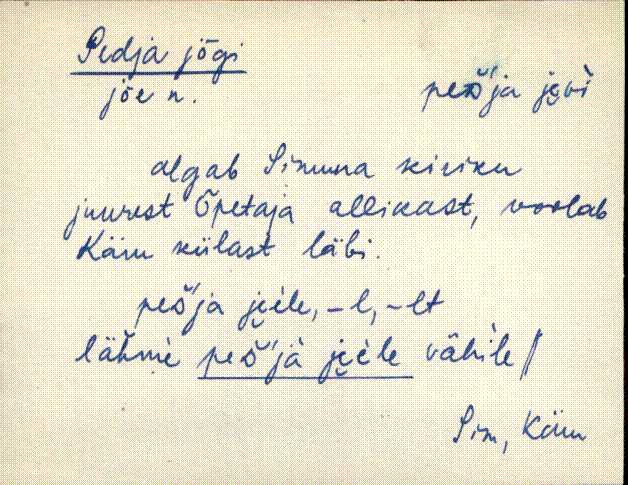 Pedja jõgi
jõe n.
peδ'ja je̮vi
algab Simuna kiriku
juurest Õpetaja allikast, voolab
Käru külast läbi.
peδ'ja je̮èle, -l, -lt
lähme peδ'jà je̮èle vähile /
Sim, Käru